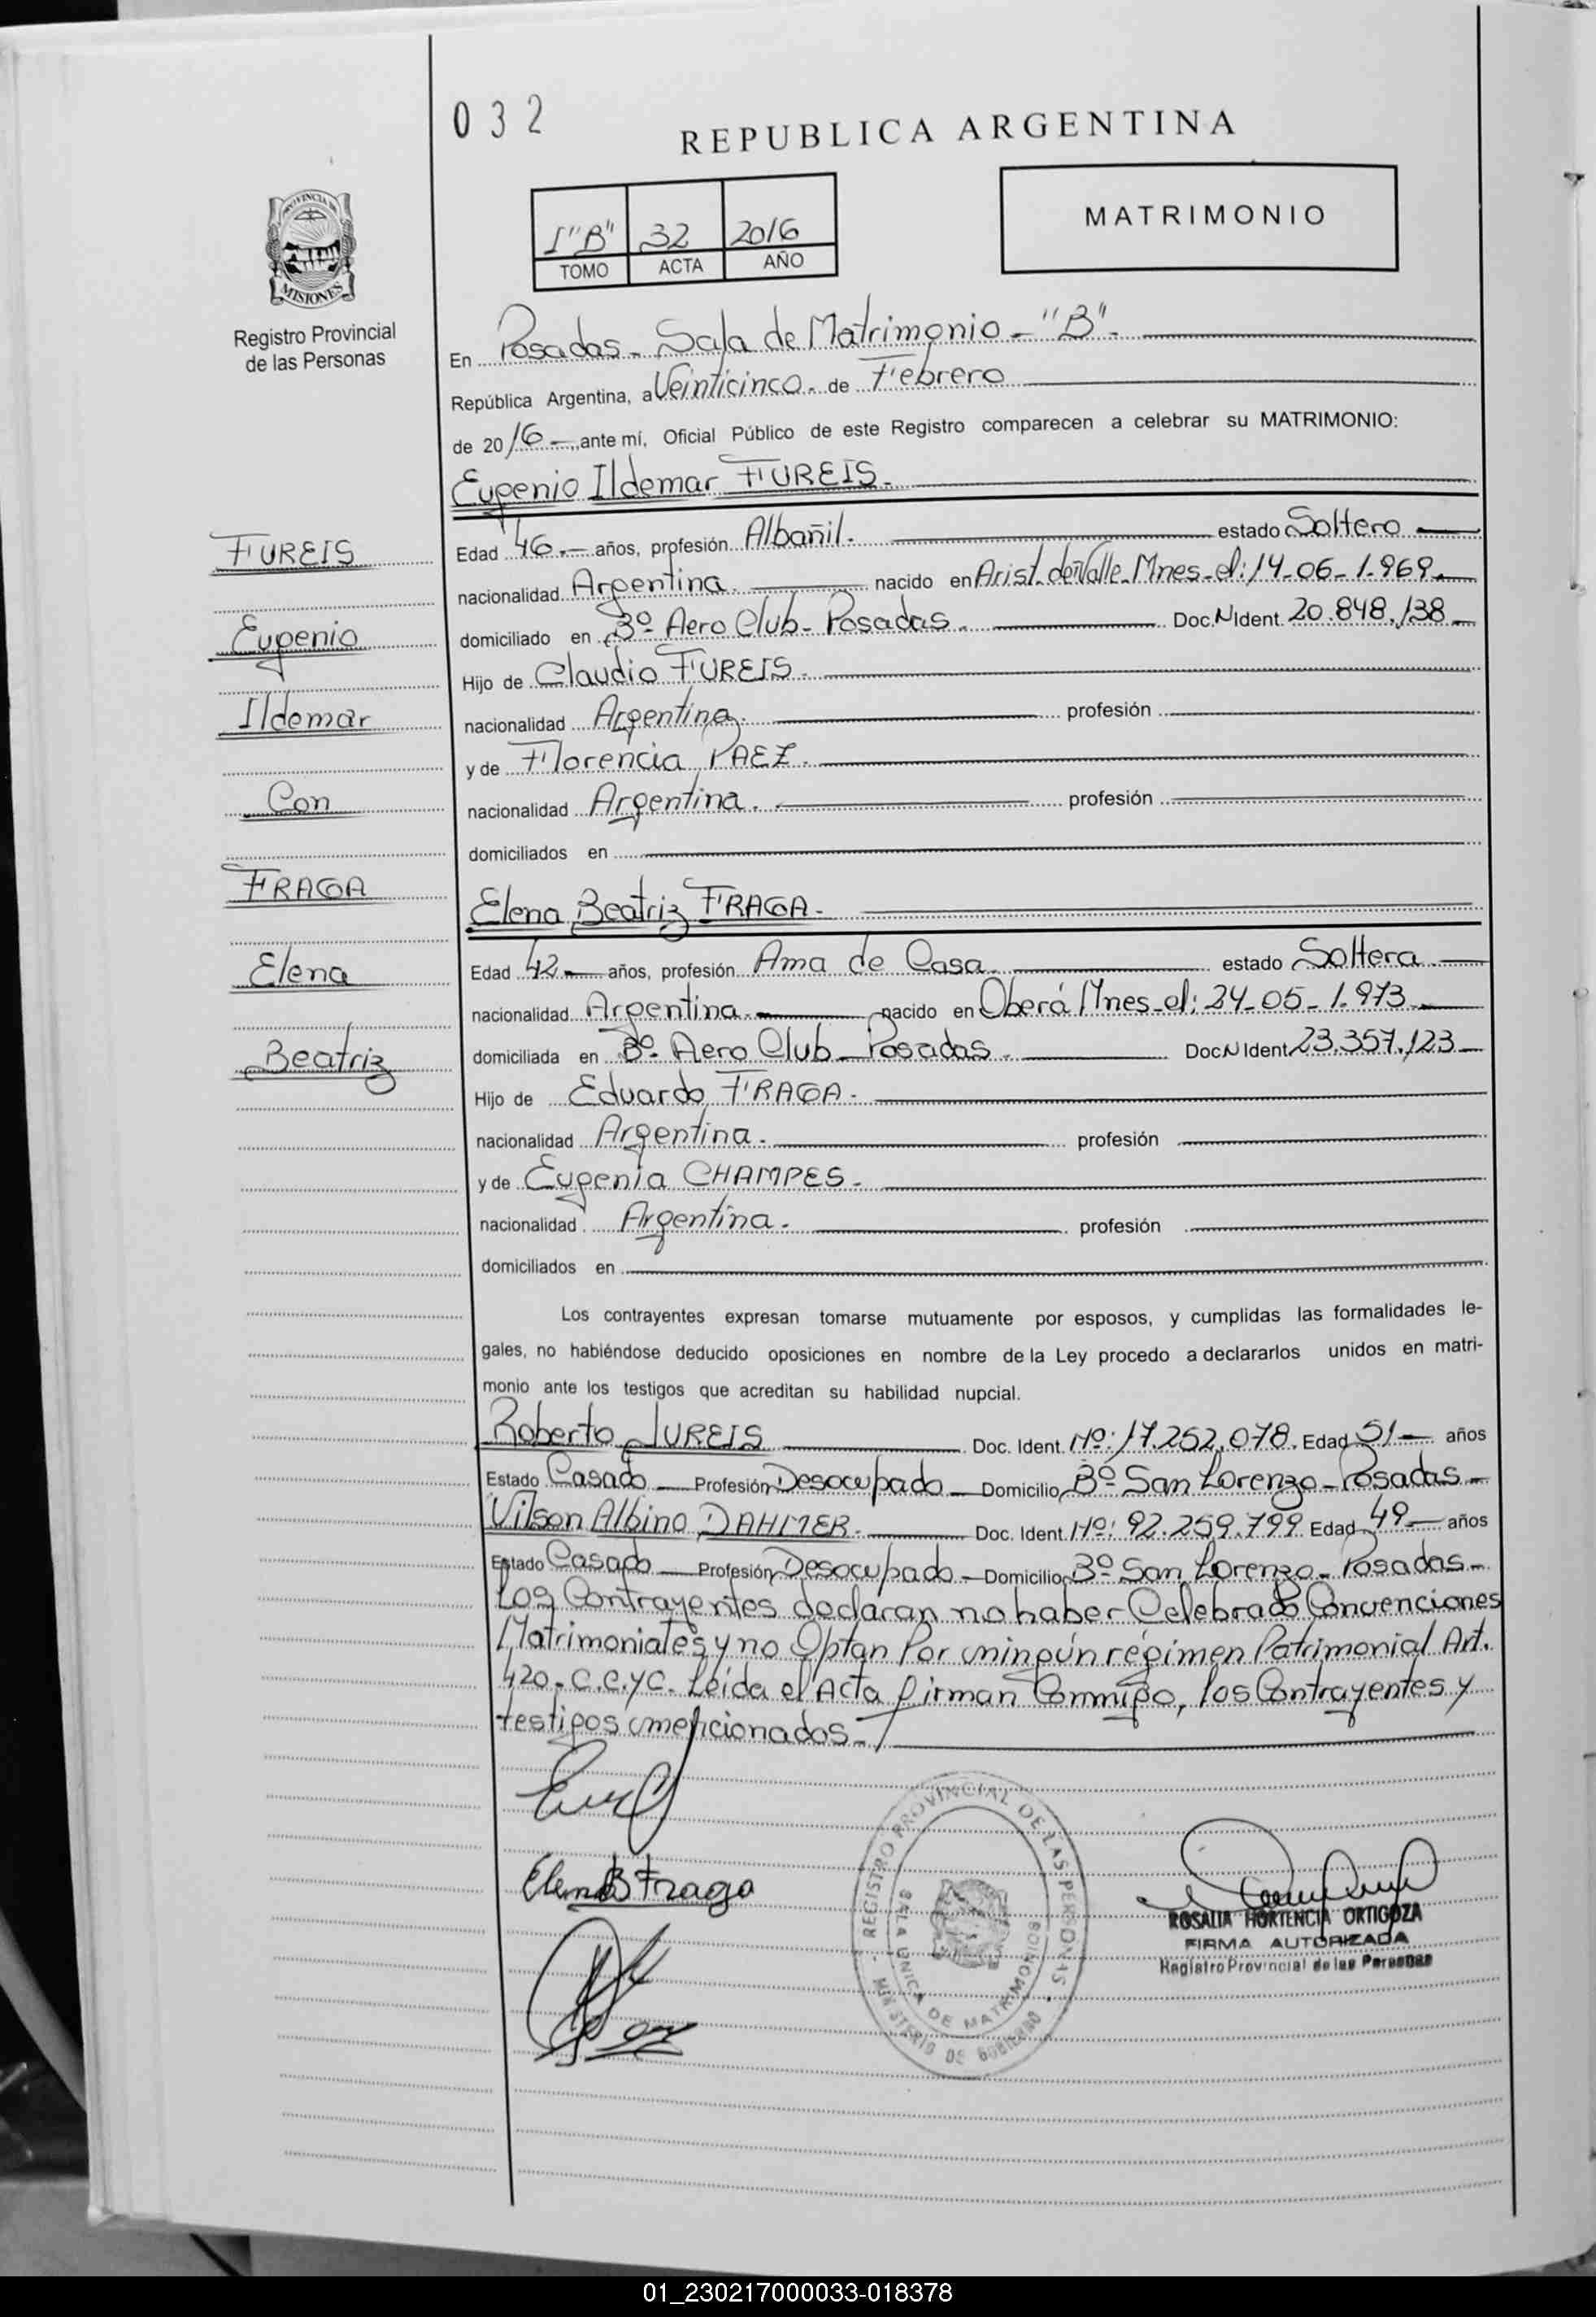 032
REPUBLICA ARGENTINA
MATRIMONIO
I"B" 32 2016
TOMO ACTA AÑO
PROVINCIA DE
MISIONES
Registro Provincial
de las Personas
En Posadas - Sala de Matrimonio - "B" -
República Argentina, a Veinticinco - de Febrero
de 2016 - , ante mí, Oficial Público de este Registro comparecen a celebrar su MATRIMONIO:
Eugenio Ildemar FUREIS -
FUREIS
Eugenio
Ildemar
Con
FRAGA
Elena
Beatriz
Edad 46 - años, profesión Albañil - estado Soltero -
nacionalidad Argentina - nacido en Arist. del Valle - Mnes - el: 14-06-1.969 -
domiciliado en Bº Aero Club - Posadas - Doc. N Ident. 20.848.138 -
Hijo de Claudio FUREIS -
nacionalidad Argentina - profesión
y de Florencia PAEZ -
nacionalidad Argentina - profesión
domiciliados en
Elena Beatriz FRAGA -
Edad 42 - años, profesión Ama de Casa - estado Soltera -
nacionalidad Argentina - nacido en Oberá Mnes - el: 24-05-1.973 -
domiciliada en Bº Aero Club - Posadas - Doc N Ident. 23.357.123 -
Hijo de Eduardo FRAGA -
nacionalidad Argentina - profesión
y de Eugenia CHAMPES -
nacionalidad Argentina - profesión
domiciliados en
Los contrayentes expresan tomarse mutuamente por esposos, y cumplidas las formalidades le-
gales, no habiéndose deducido oposiciones en nombre de la Ley procedo a declararlos unidos en matri-
monio ante los testigos que acreditan su habilidad nupcial.
Roberto JUREIS Doc. Ident. Nº: 17.252.078. Edad 51 - años
Estado Casado - Profesión Desocupado - Domicilio Bº San Lorenzo - Posadas -
Vilson Albino DAHMER - Doc. Ident. Nº: 92.259.799. Edad 49 - años
Estado Casado - Profesión Desocupado - Domicilio Bº San Lorenzo - Posadas -
Los Contrayentes declaran no haber Celebrado Convenciones
Matrimoniales y no Optan Por ningún régimen Patrimonial Art.
420 - C.C.yC. Leida el Acta firman Conmigo, los Contrayentes y
testigos mencionados -
Elena B Fraga
REGISTRO PROVINCIAL DE LAS PERSONAS
SALA UNICA DE MATRIMONIOS
MINISTERIO DE GOBIERNO
ROSALIA HORTENCIA ORTIGOZA
FIRMA AUTORIZADA
Registro Provincial de las Personas
01_230217000033-018378